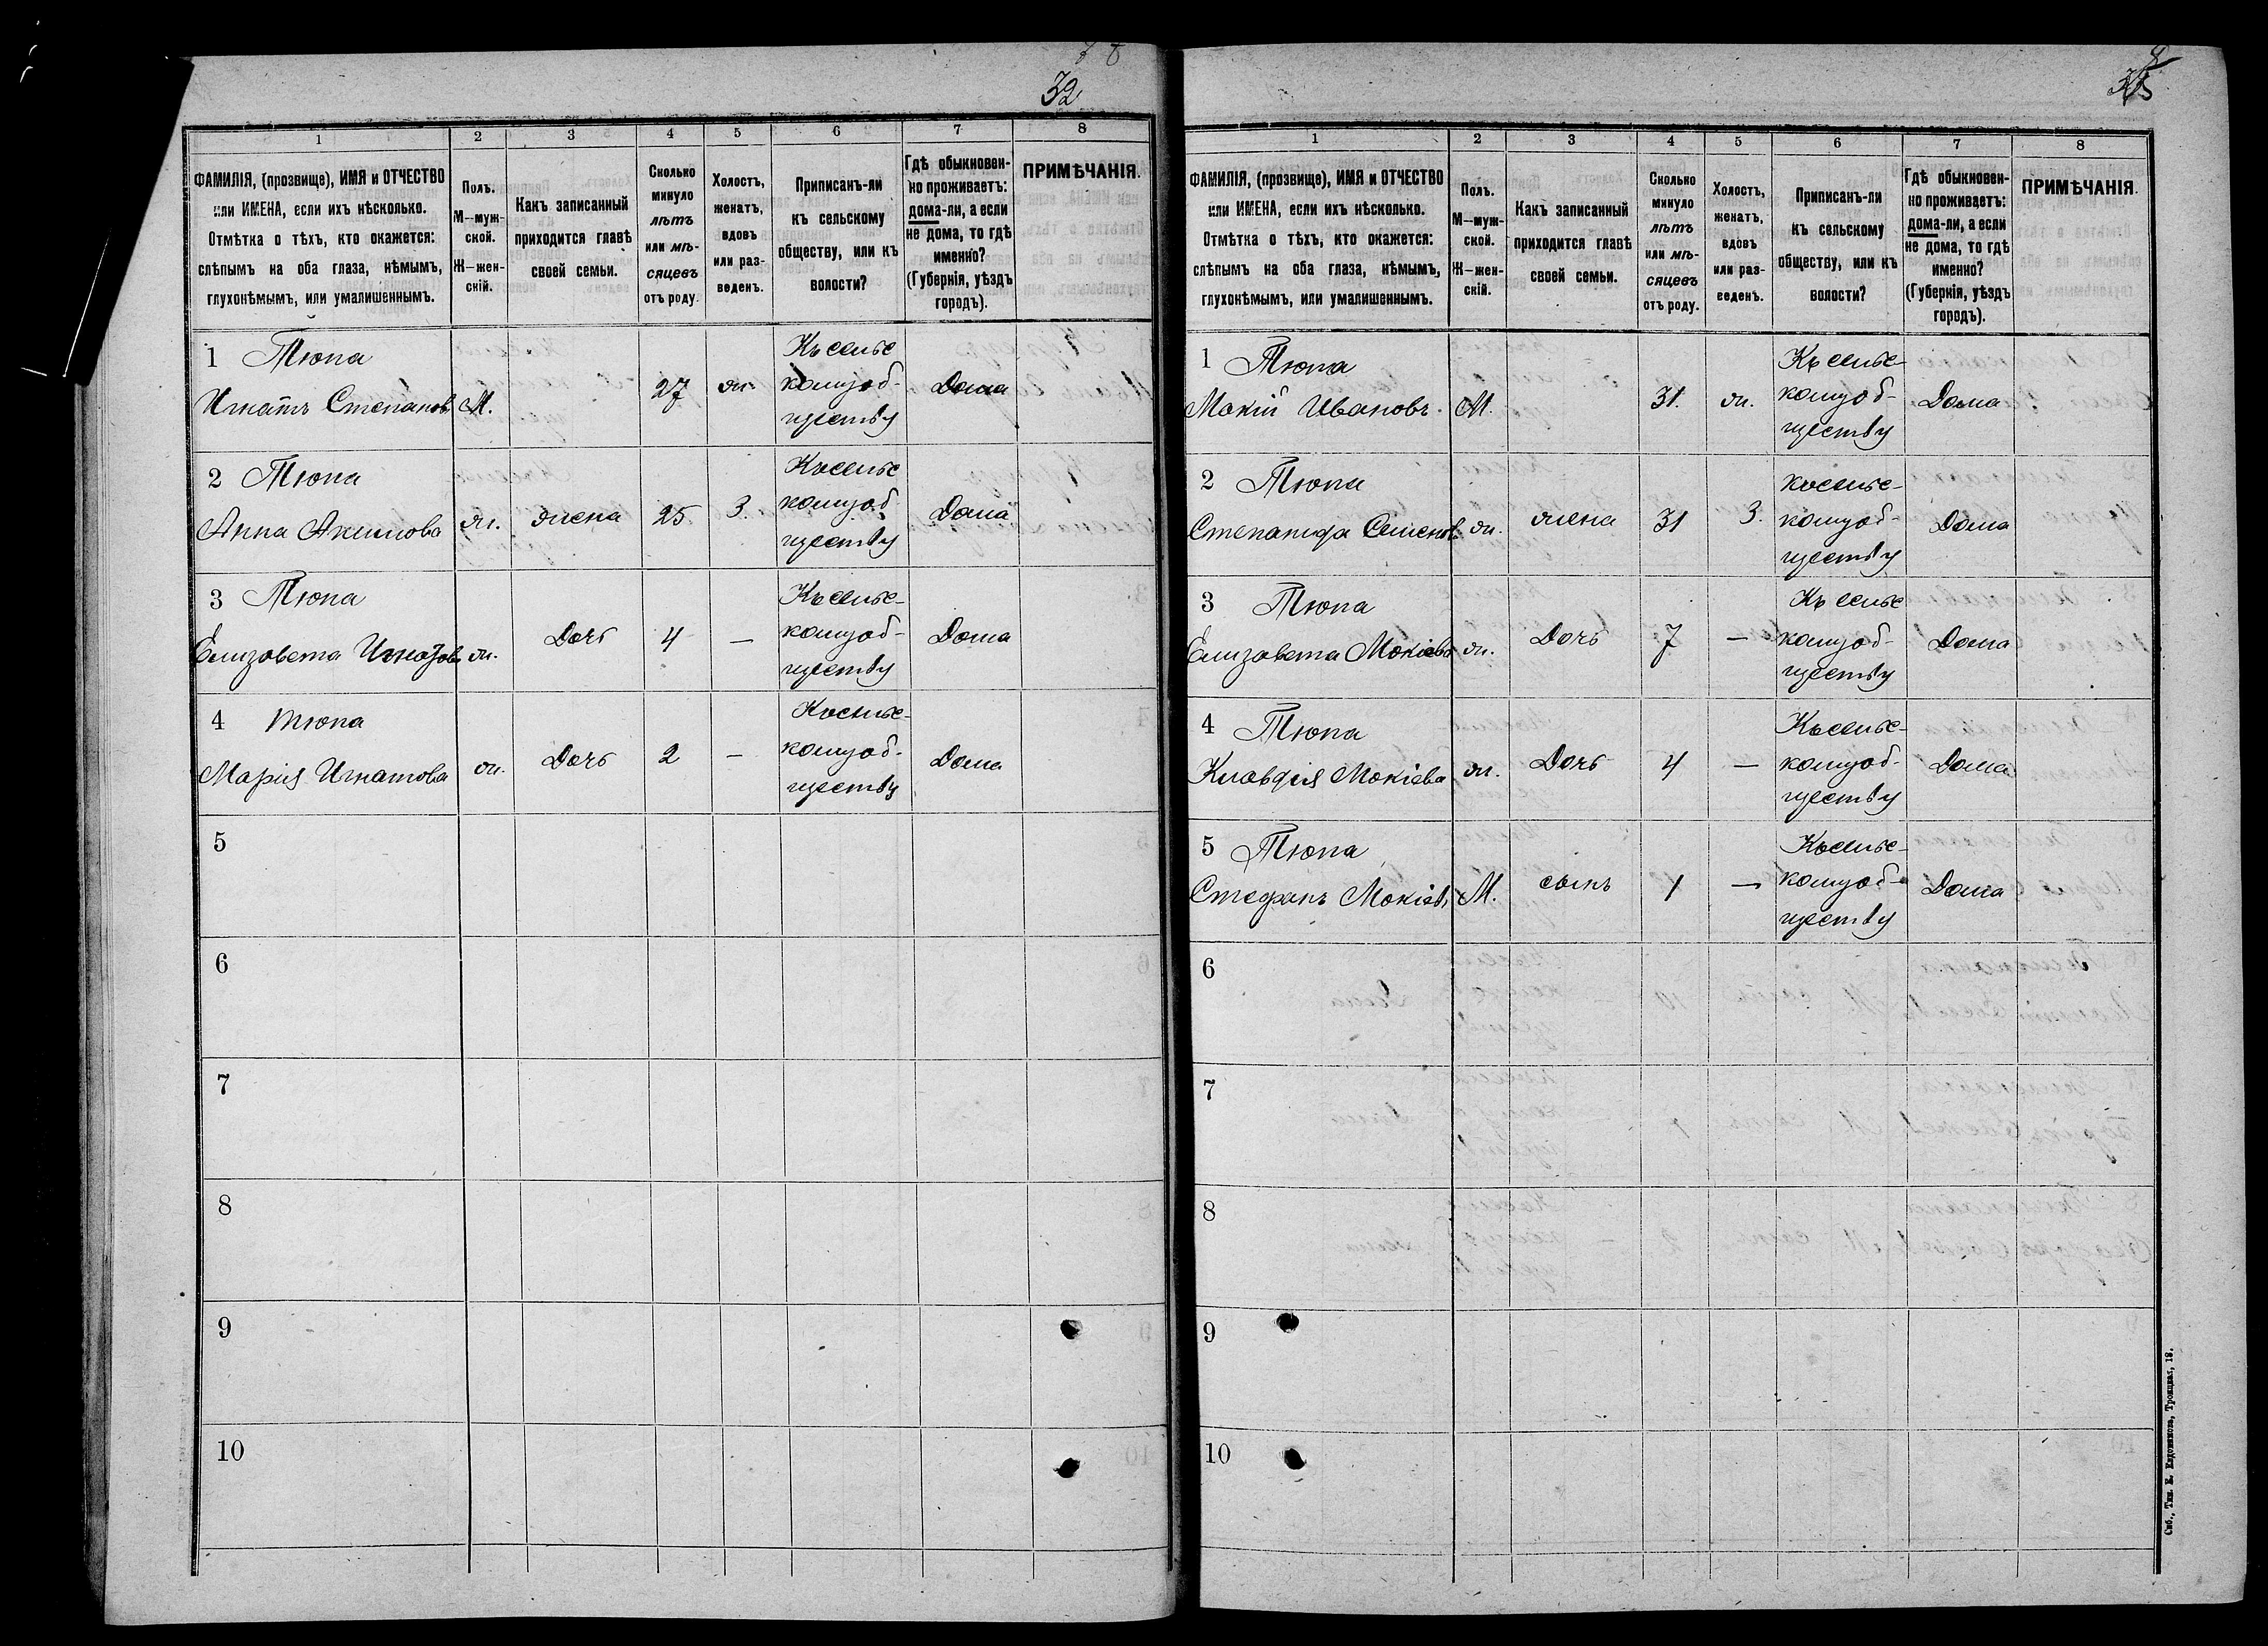 32
1 2 3 4 5 6 7 8
ФАМИЛІЯ, (прозвище), ИМЯ и ОТЧЕСТВО
или ИМЕНА, если ихъ нѣсколько.
Отмѣтка о тѣхъ, кто окажется:
слѣпымъ на оба глаза, нѣмымъ,
глухонѣмымъ, или умалишеннымъ.
Полъ.
М—муж-
ской.
Ж—жен-
скій.
Какъ записанный
приходится главѣ
своей семьи.
Сколько
минуло
лѣтъ
или мѣ-
сяцевъ
отъ роду.
Холостъ,
женатъ,
вдовъ
или раз-
веденъ.
Приписанъ-ли
къ сельскому
обществу, или къ
волости?
Гдѣ обыкновен-
но проживаетъ:
дома-ли, а если
не дома, то гдѣ
именно?
(Губернія, уѣздъ
городъ).
ПРИМѢЧАНІЯ.
1 Тюпа
Игнатъ Степановъ М. 27 ж. Къ сельс
кому об-
ществу Дома
2 Тюпа
Анна Акимова ж. жена 25 З. Къ сельс
кому об
ществу Дома
3 Тюпа
Елизавета Игнатова ж. Дочь 4 — Къ сельс-
кому об-
ществу Дома
4 Тюпа
Марія Игнатова ж. Дочь 2 — Къ сельс-
кому об-
ществу Дома
5
6
7
8
9
10
1 2 3 4 5 6 7 8
ФАМИЛІЯ, (прозвище), ИМЯ и ОТЧЕСТВО
или ИМЕНА, если ихъ нѣсколько.
Отмѣтка о тѣхъ, кто окажется:
слѣпымъ на оба глаза, нѣмымъ,
глухонѣмымъ, или умалишеннымъ.
Полъ.
М—муж-
ской.
Ж—жен-
скій.
Какъ записанный
приходится главѣ
своей семьи.
Сколько
минуло
лѣтъ
или мѣ-
сяцевъ
отъ роду.
Холостъ,
женатъ,
вдовъ
или раз-
веденъ.
Приписанъ-ли
къ сельскому
обществу, или къ
волости?
Гдѣ обыкновен-
но проживаетъ:
дома-ли, а если
не дома, то гдѣ
именно?
(Губернія, уѣздъ
городъ).
ПРИМѢЧАНІЯ.
1 Тюпа
Мокій Ивановъ. М. 31. ж. Къ сельс-
кому об-
ществу Дома
2 Тюпа
Степанида Семенов. ж. жена 31 З. Къ сельс-
кому об-
ществу Дома
3 Тюпа
Елизавета Мокіева ж. Дочь 7 — Къ сельс
кому об-
ществу Дома
4 Тюпа
Клавдія Мокіева ж. Дочь 4 — Къ сельс-
кому об-
ществу Дома
5 Тюпа
Стефанъ Мокіевъ М. сынъ 1 — Къ сельс-
кому об-
ществу Дома
6
7
8
9
10
Спб., Тип. Е. Евдокимова, Троицкая, 18.